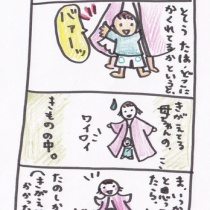 とそうたは、どこに
かくれてるかというと、
バァーッ
きがえてる
母ちゃんの、
ワイワイ
きものの中。
ま、いっ
と思っ
たら、
たのしか
(きがえ